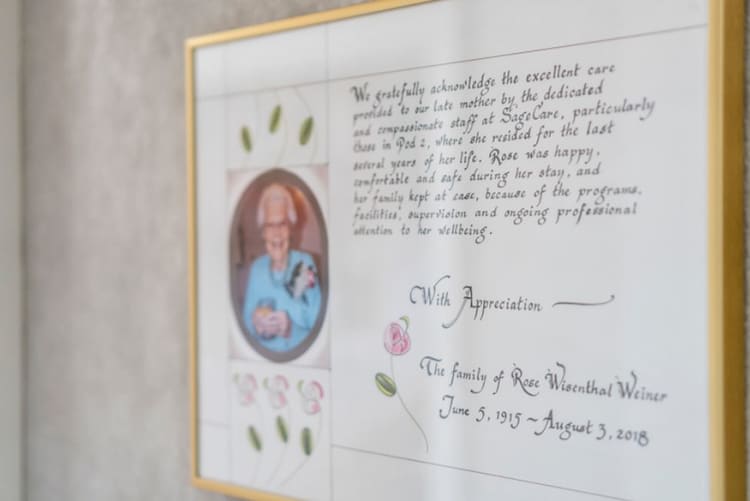 We gratefully acknowledge the excellent care
provided to our late mother by the dedicated
and compassionate staff at SageCare, particularly
those in Pod 2, where she resided for the last
several years of her life. Rose was happy,
comfortable and safe during her stay, and
her family kept at ease, because of the programs,
facilities, supervision and ongoing professional
attention to her wellbeing.
With Appreciation
The family of Rose Wisenthal Weiner
June 5, 1915 ~ August 3, 2018